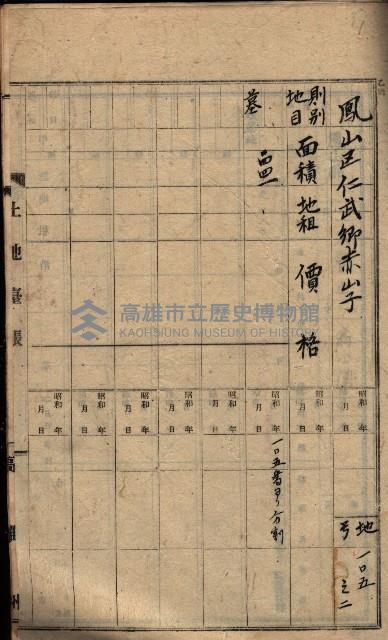 鳳山郡仁武鄉赤山子
地号 一〇五之二
則別
地目 面積 地租 價格
墓
一〇五番ヨリ分割
昭和 年 月 日
昭和 年 月 日
昭和 年 月 日
昭和 年 月 日
昭和 年 月 日
昭和 年 月 日
昭和 年 月 日
土地臺帳
高雄州
高雄市立歷史博物館
KAOHSIUNG MUSEUM OF HISTORY